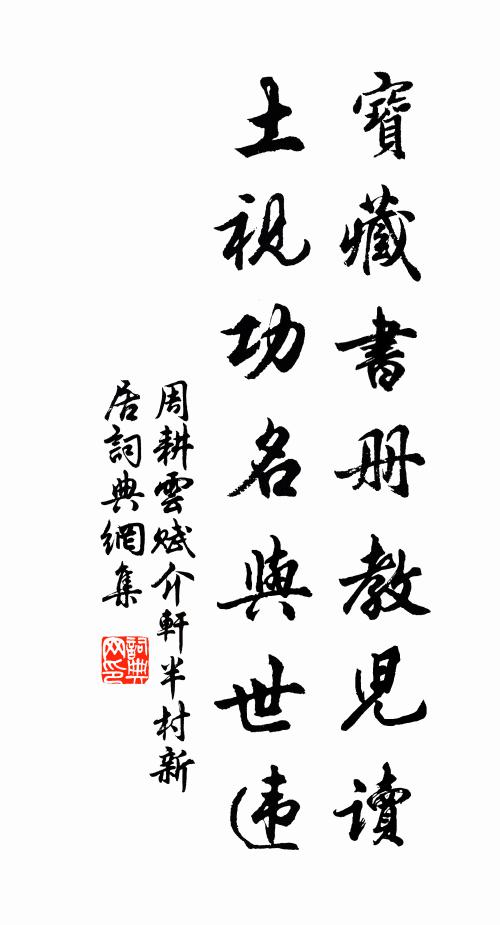 寶藏書册教兒讀
土視功名與世违
周耕雲賦介軒半村新
居詞典網集
詞典网印